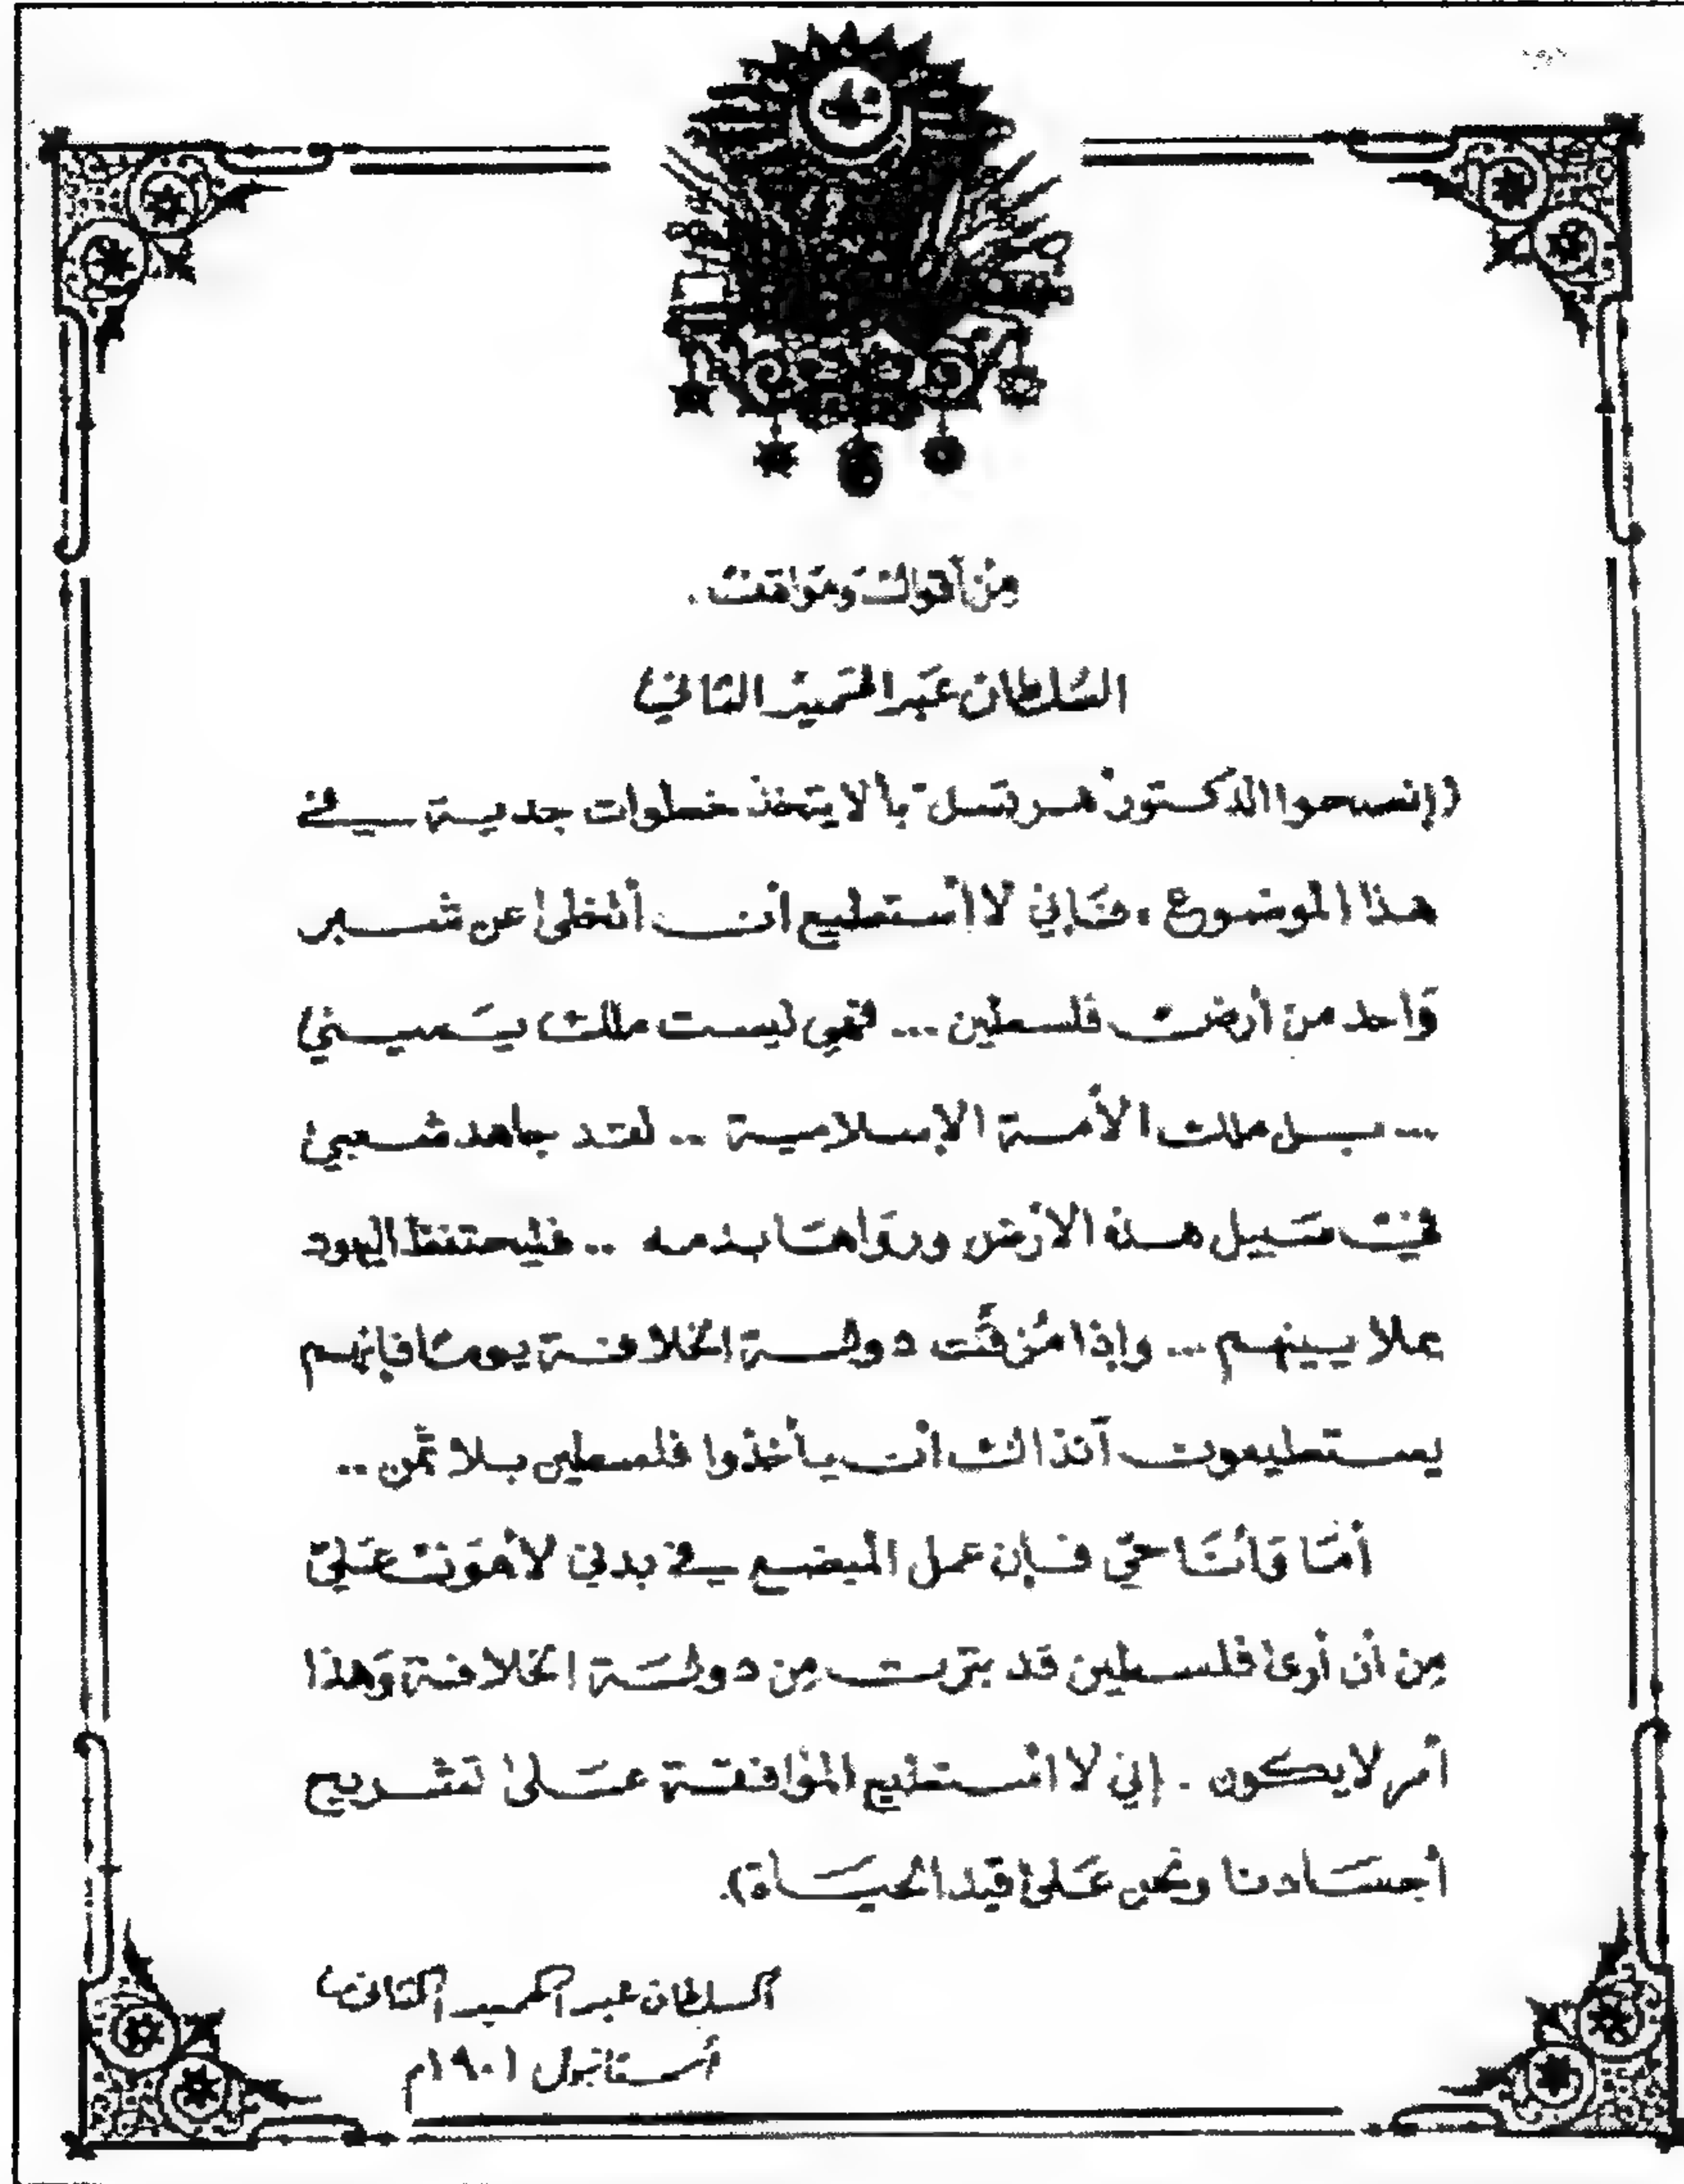 من أقوال ومواقف .
السلطان عبد الحميد الثاني
(إنصحوا الدكتور هرتسل بألا يتخذ خطوات جدية في
هذا الموضوع ، فإني لا أستطيع أن أتخلى عن شبر
واحد من أرض فلسطين ... فهي ليست ملك يميني
... بل ملك الأمة الإسلامية .. لقد جاهد شعبي
في سبيل هذه الأرض ورواها بدمه .. فليحتفظ اليهود
بملايينهم ... وإذا مُزقت دولة الخلافة يومًا فإنهم
يستطيعون آنذاك أن يأخذوا فلسطين بلا ثمن ..
أما وأنا حيّ فإن عمل المبضع في بدني لأهون عليّ
مِن أن أرى فلسطين قد بترت مِن دولة الخلافة وَهذا
أمر لا يكون . إني لا أستطيع الموافقة على تشريح
أجسادنا ونحن على قيد الحياة).
السلطان عبد الحميد الثاني
أستانبول ١٩٠١م